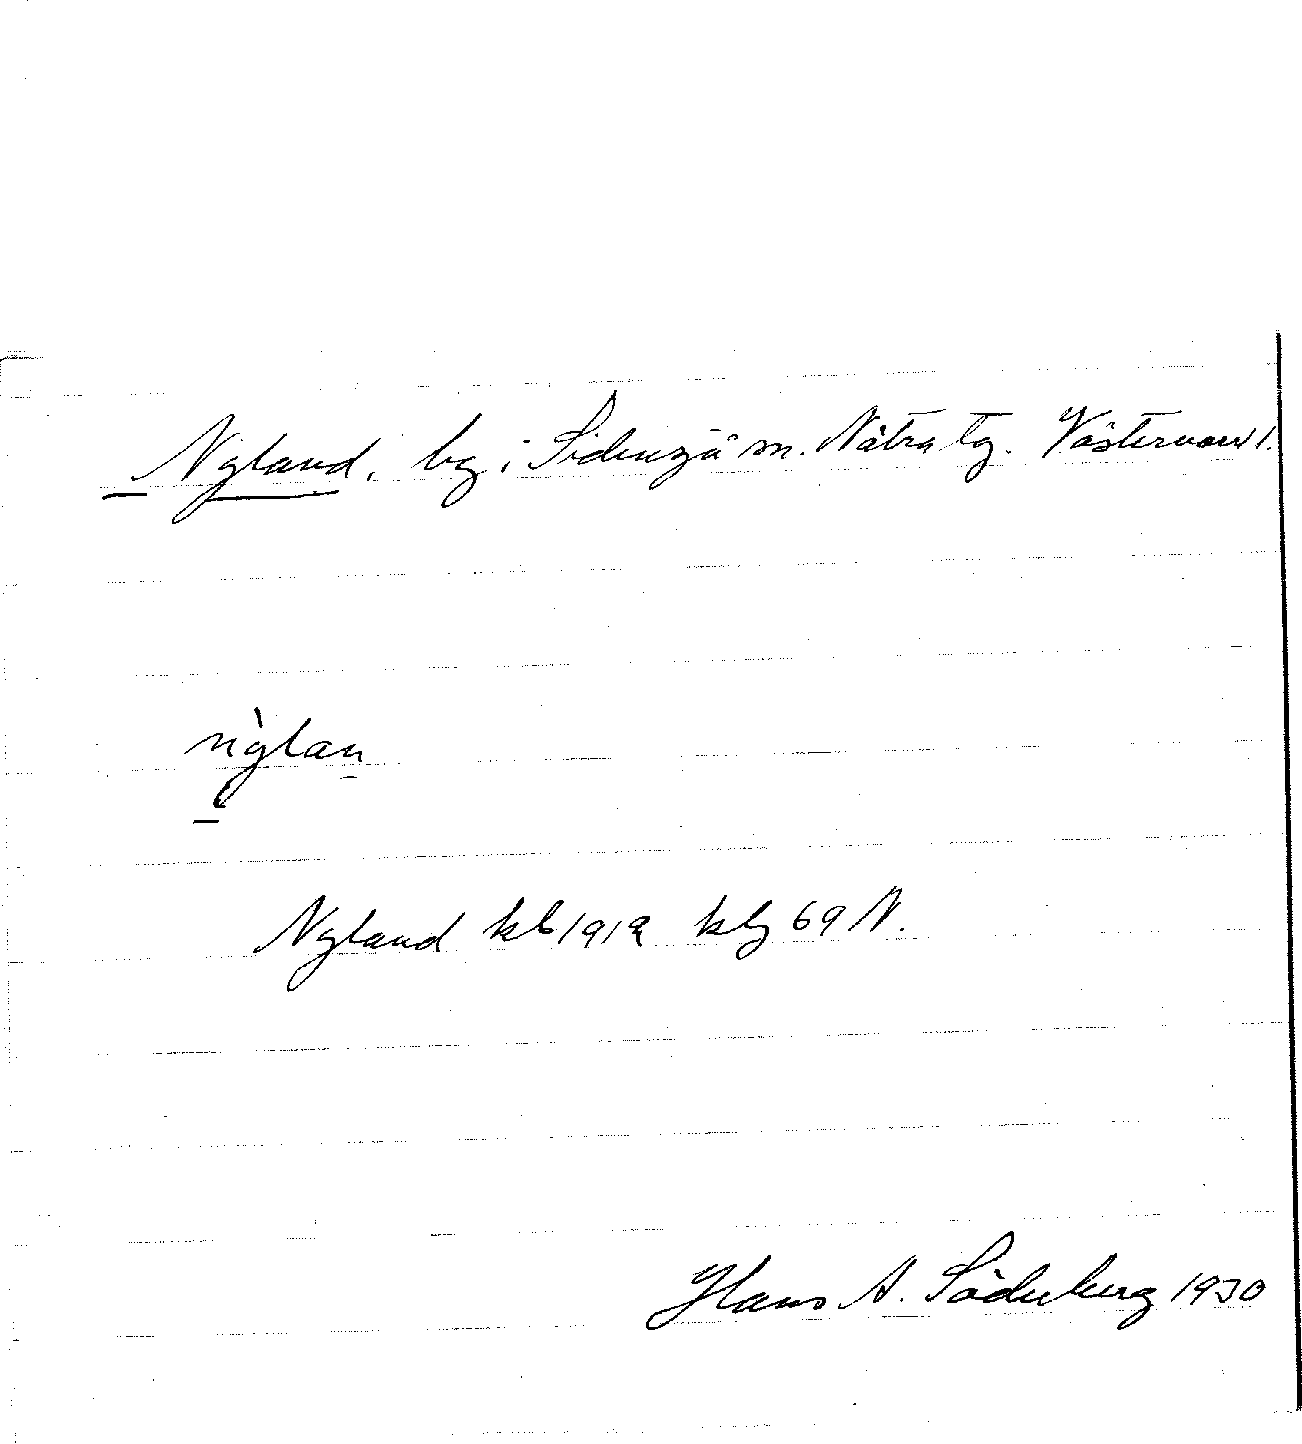 Nyland. by i Sidensjö sn. Nätra tg. Västernorrl.
nỳlan
Nyland kb 1919 kbg 69 N.
Hans A. Söderberg 1930